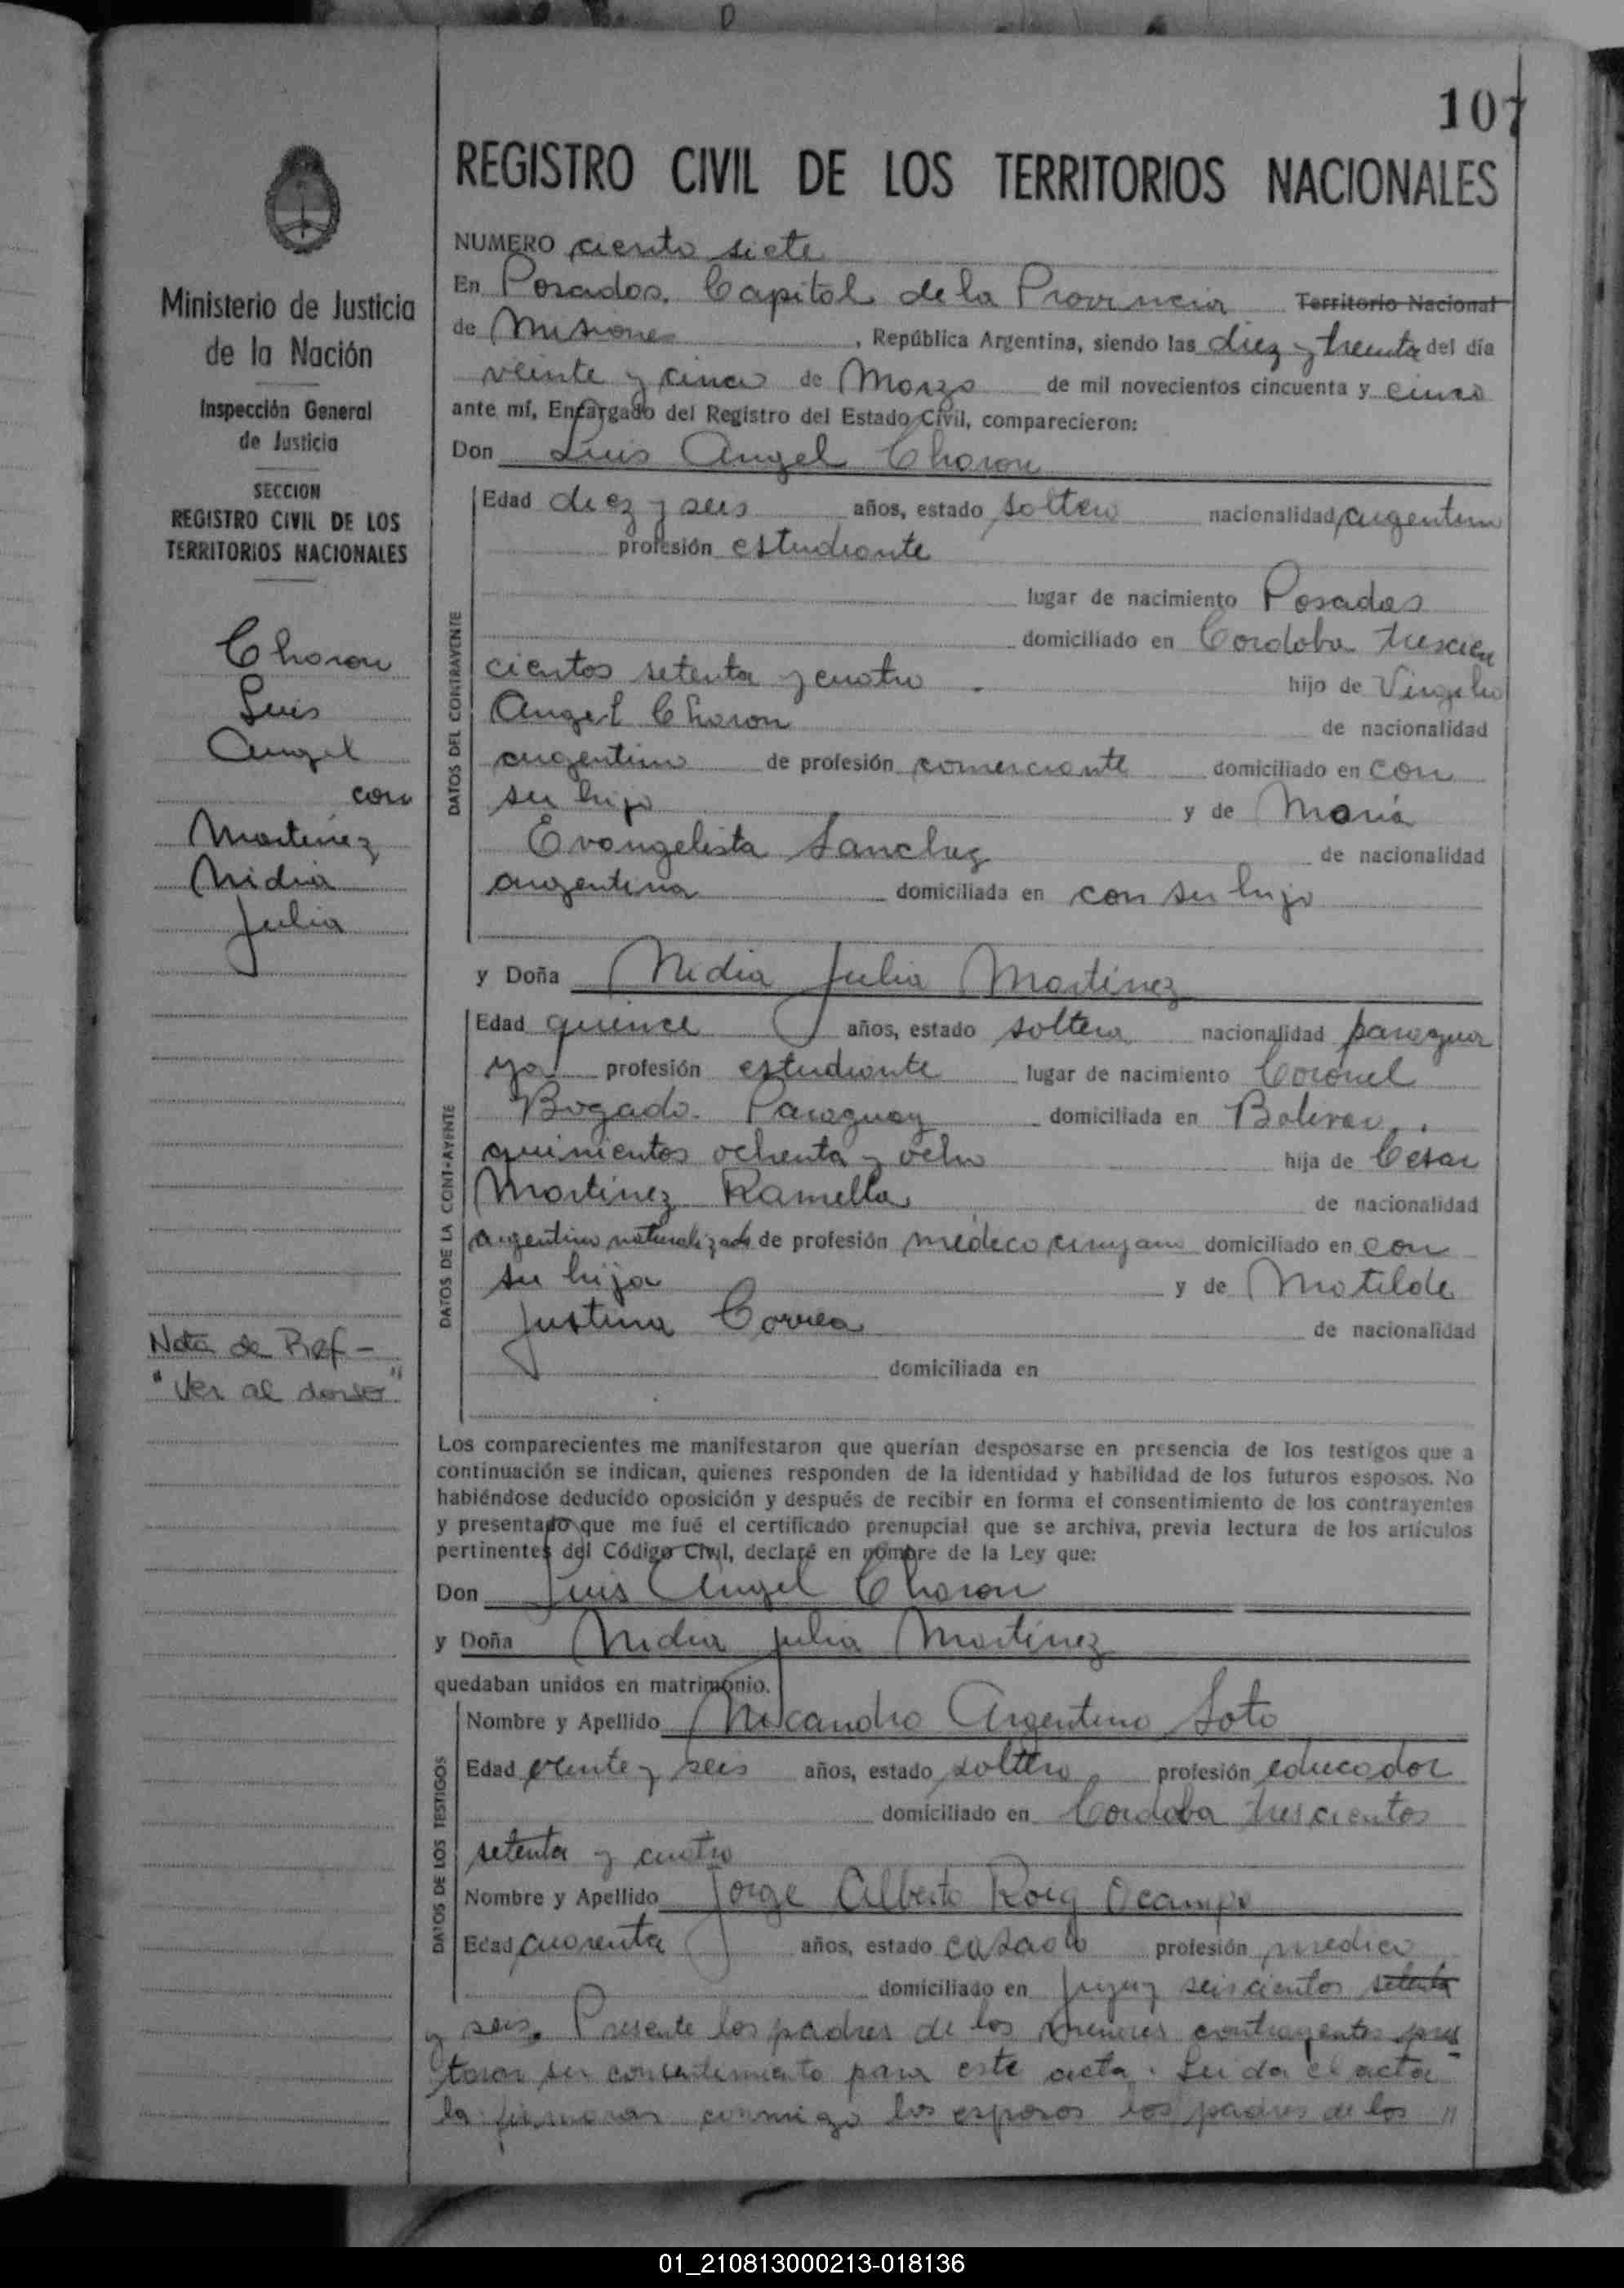 107
REGISTRO CIVIL DE LOS TERRITORIOS NACIONALES
NUMERO ciento siete
En Posadas, Capital de la Provincia Territorio Nacional
de Misiones, República Argentina, siendo las diez y treinta del día
veinte y cinco de Marzo de mil novecientos cincuenta y cinco
ante mí, Encargado del Registro del Estado Civil, comparecieron:
Don Luis Angel Choron
DATOS DEL CONTRAYENTE
Edad diez y seis años, estado soltero nacionalidad argentino
profesión estudiante
lugar de nacimiento Posadas
domiciliado en Cordoba trescien
cientos setenta y cuatro. hijo de Virgilio
Angel Choron de nacionalidad
argentino de profesión comerciante domiciliado en con
su hijo y de María
Evangelista Sanchez de nacionalidad
argentina domiciliada en con su hijo
y Doña Nidia Julia Martínez
DATOS DE LA CONTRAYENTE
Edad quince años, estado soltera nacionalidad paragua
ya profesión estudiante lugar de nacimiento Coronel
Bogado. Paraguay domiciliada en Bolivar
quinientos ochenta y ocho hija de Cesar
Martínez Ramella de nacionalidad
argentino naturalizado de profesión médico cirujano domiciliado en con
su hija y de Matilde
Justina Correa de nacionalidad
domiciliada en
Los comparecientes me manifestaron que querían desposarse en presencia de los testigos que a
continuación se indican, quienes responden de la identidad y habilidad de los futuros esposos. No
habiéndose deducido oposición y después de recibir en forma el consentimiento de los contrayentes
y presentado que me fué el certificado prenupcial que se archiva, previa lectura de los artículos
pertinentes del Código Civil, declaré en nombre de la Ley que:
Don Luis Angel Choron
y Doña Nidia Julia Martínez
quedaban unidos en matrimonio.
DATOS DE LOS TESTIGOS
Nombre y Apellido Nicandro Argentino Soto
Edad veinte y seis años, estado soltero profesión educador
domiciliado en Cordoba trescientos
setenta y cuatro
Nombre y Apellido Jorge Alberto Roig Ocampo
Edad cuarenta años, estado casado profesión medico
domiciliado en Jujuy seiscientos setenta
y seis. Presente los padres de los menores contrayentes pres
taron su consentimiento para este acta. Leida el acta
la firmaron conmigo los esposos los padres de los "
Ministerio de Justicia
de la Nación
Inspección General
de Justicia
SECCION
REGISTRO CIVIL DE LOS
TERRITORIOS NACIONALES
Choron
Luis
Angel
con
Martínez
Nidia
Julia
Nota de Ref -
"Ver al dorso"
01_210813000213-018136